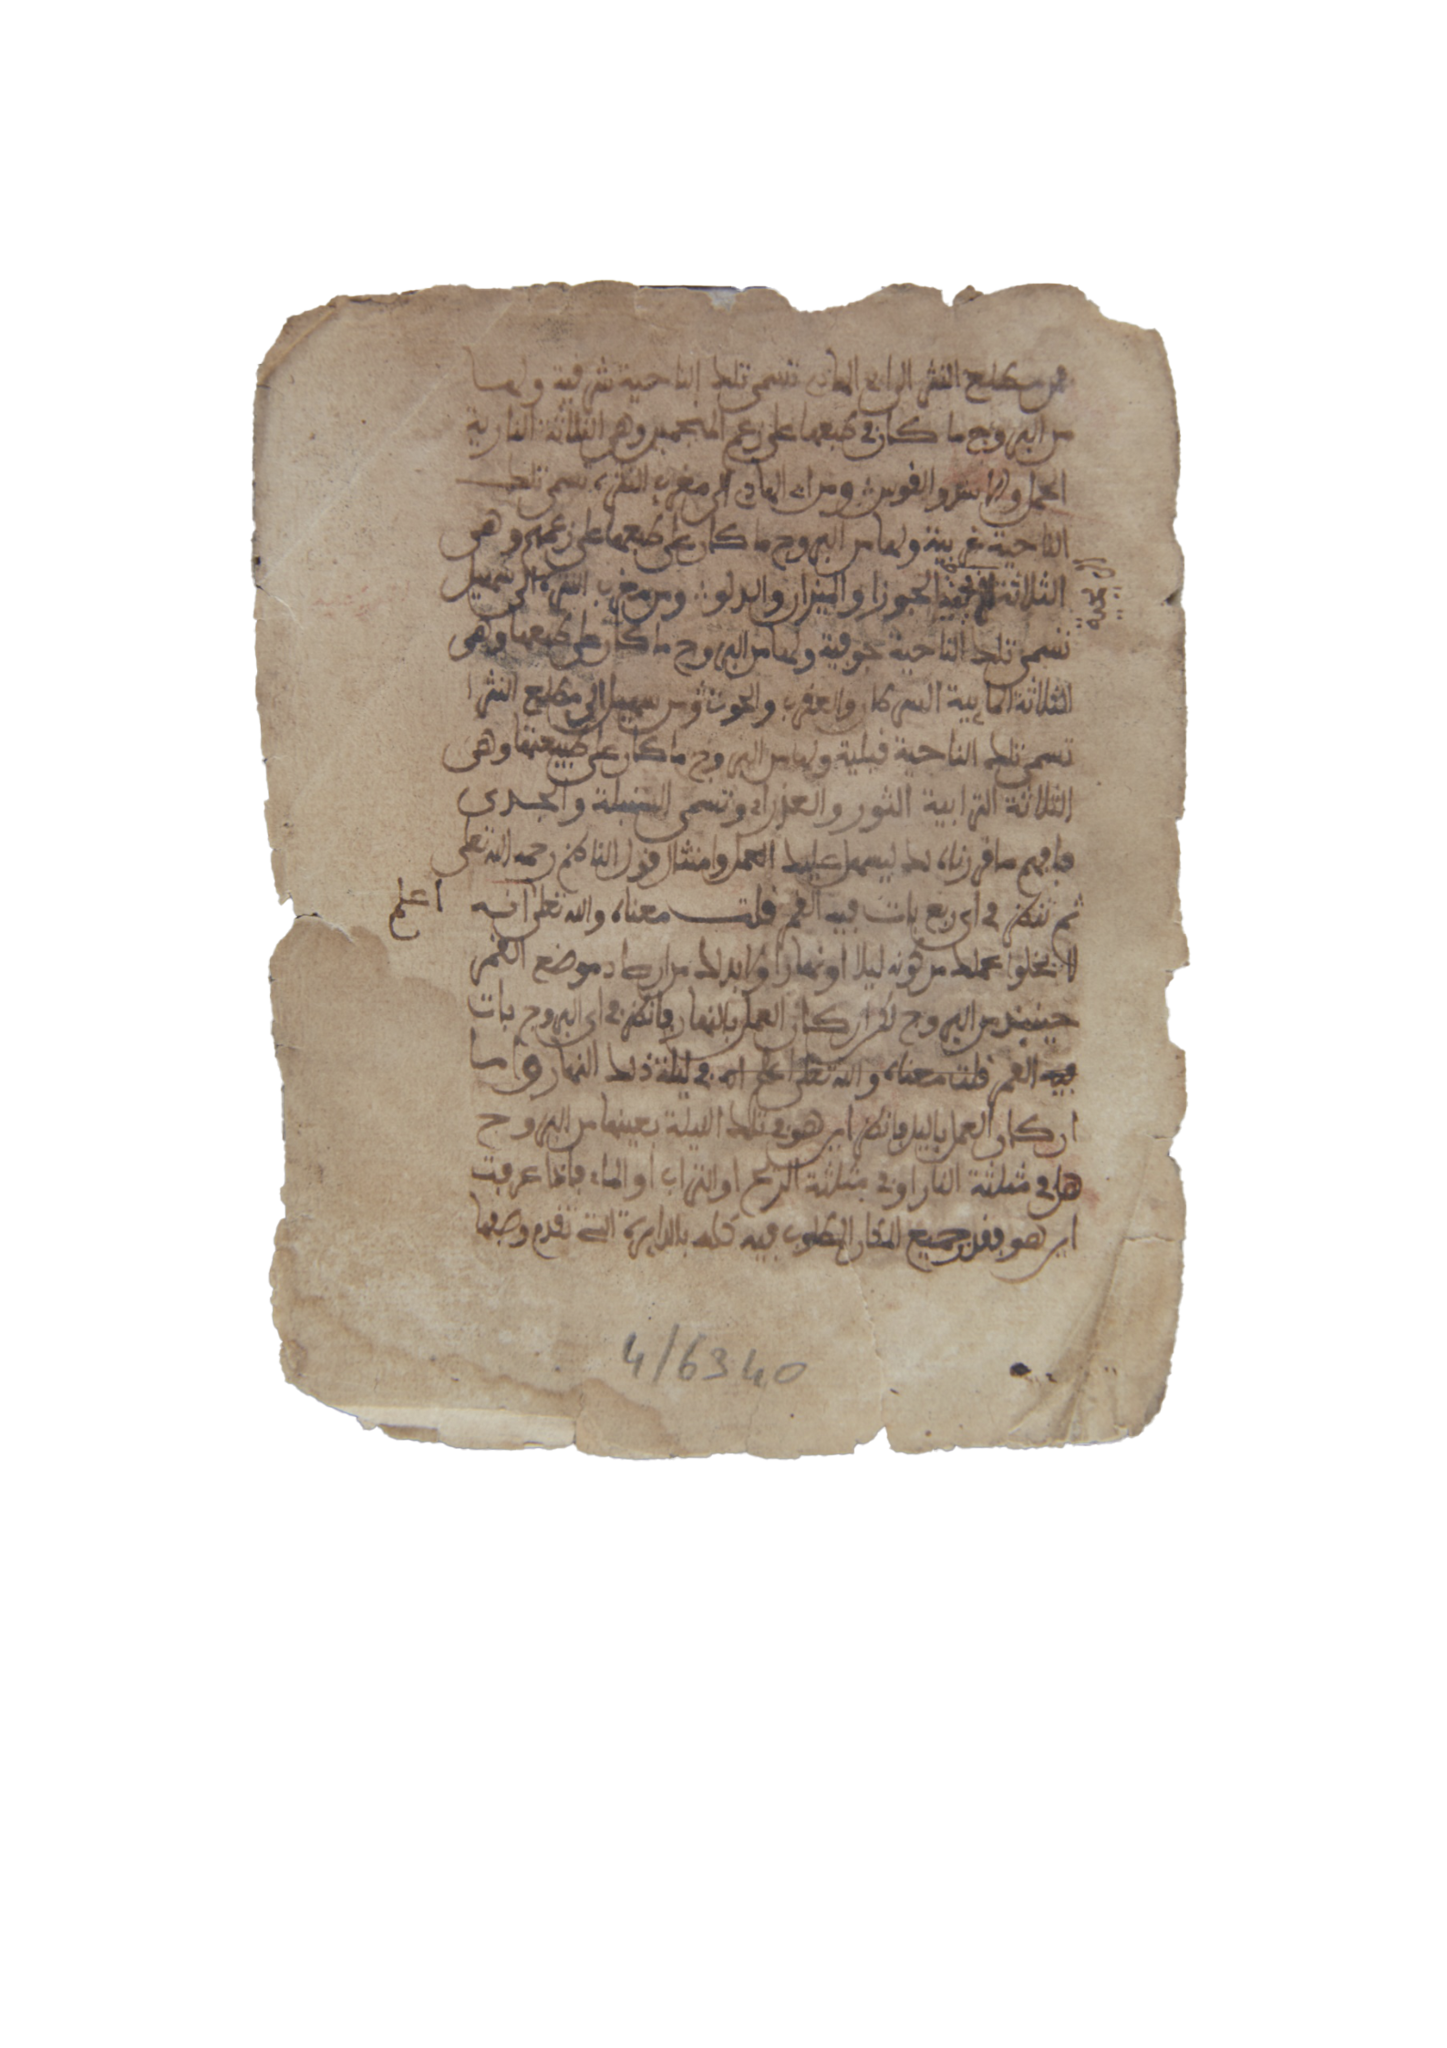 فمن مطلع النثرا الى الهادي تسمى تلك الناحية شرقية ولها
من البروج ما كان في طبعها على زعم المنجمين وهن الثلاثة النارية
الحمل والاسد والقوس ومن الهادي الى مغرب النثرة تسمى تلك
الناحية غربية ولها من البروج ما كان على طبعها على زعمهم وهي
الثلاثة الجوزا والميزان والدلو ومن مغرب النثرة الى سهيل
الريحية
تسمى تلك الناحية جوفية ولها من البروج ما كان على طبعها وهي
الثلاثة المايية السرطان والعقرب والحوت ومن سهيل الى مطلع النثرا
تسمى تلك الناحية قبلية ولها من البروج ما كان على طبيعتها وهي
الثلاثة الترابية الثور والعذراء وتسمى السنبلة والجدى
فافهم ما قررناه لك ليسهل عليك العمل وامتثال قول الناظم رحمه الله تعلى
ثم تنظر في اي ربع بات فيه القمر قلت معناه والله تعلى اعلم انه
لا تخلوا عملك من كونه ليلا او نهارا ولابد لك من ادراك موضع القمر
حينيذ من البروج لكن ان كان العمل بالنهار فانظر في اي البروج بات
فيه القمر قلت معناه والله تعلى اعلم اي في ليلة ذلك النهار واما
ان كان العمل باليل فانظر اين هو في تلك الليلة بعينها من البروج
هل في مثلثة النار او في مثلثة الريح او التراب او الماء فاذا عرفت
اين هو فقدر جميع المكان المطلوب فيه كله بالدايرة التي تقدم وصفها
4/6340